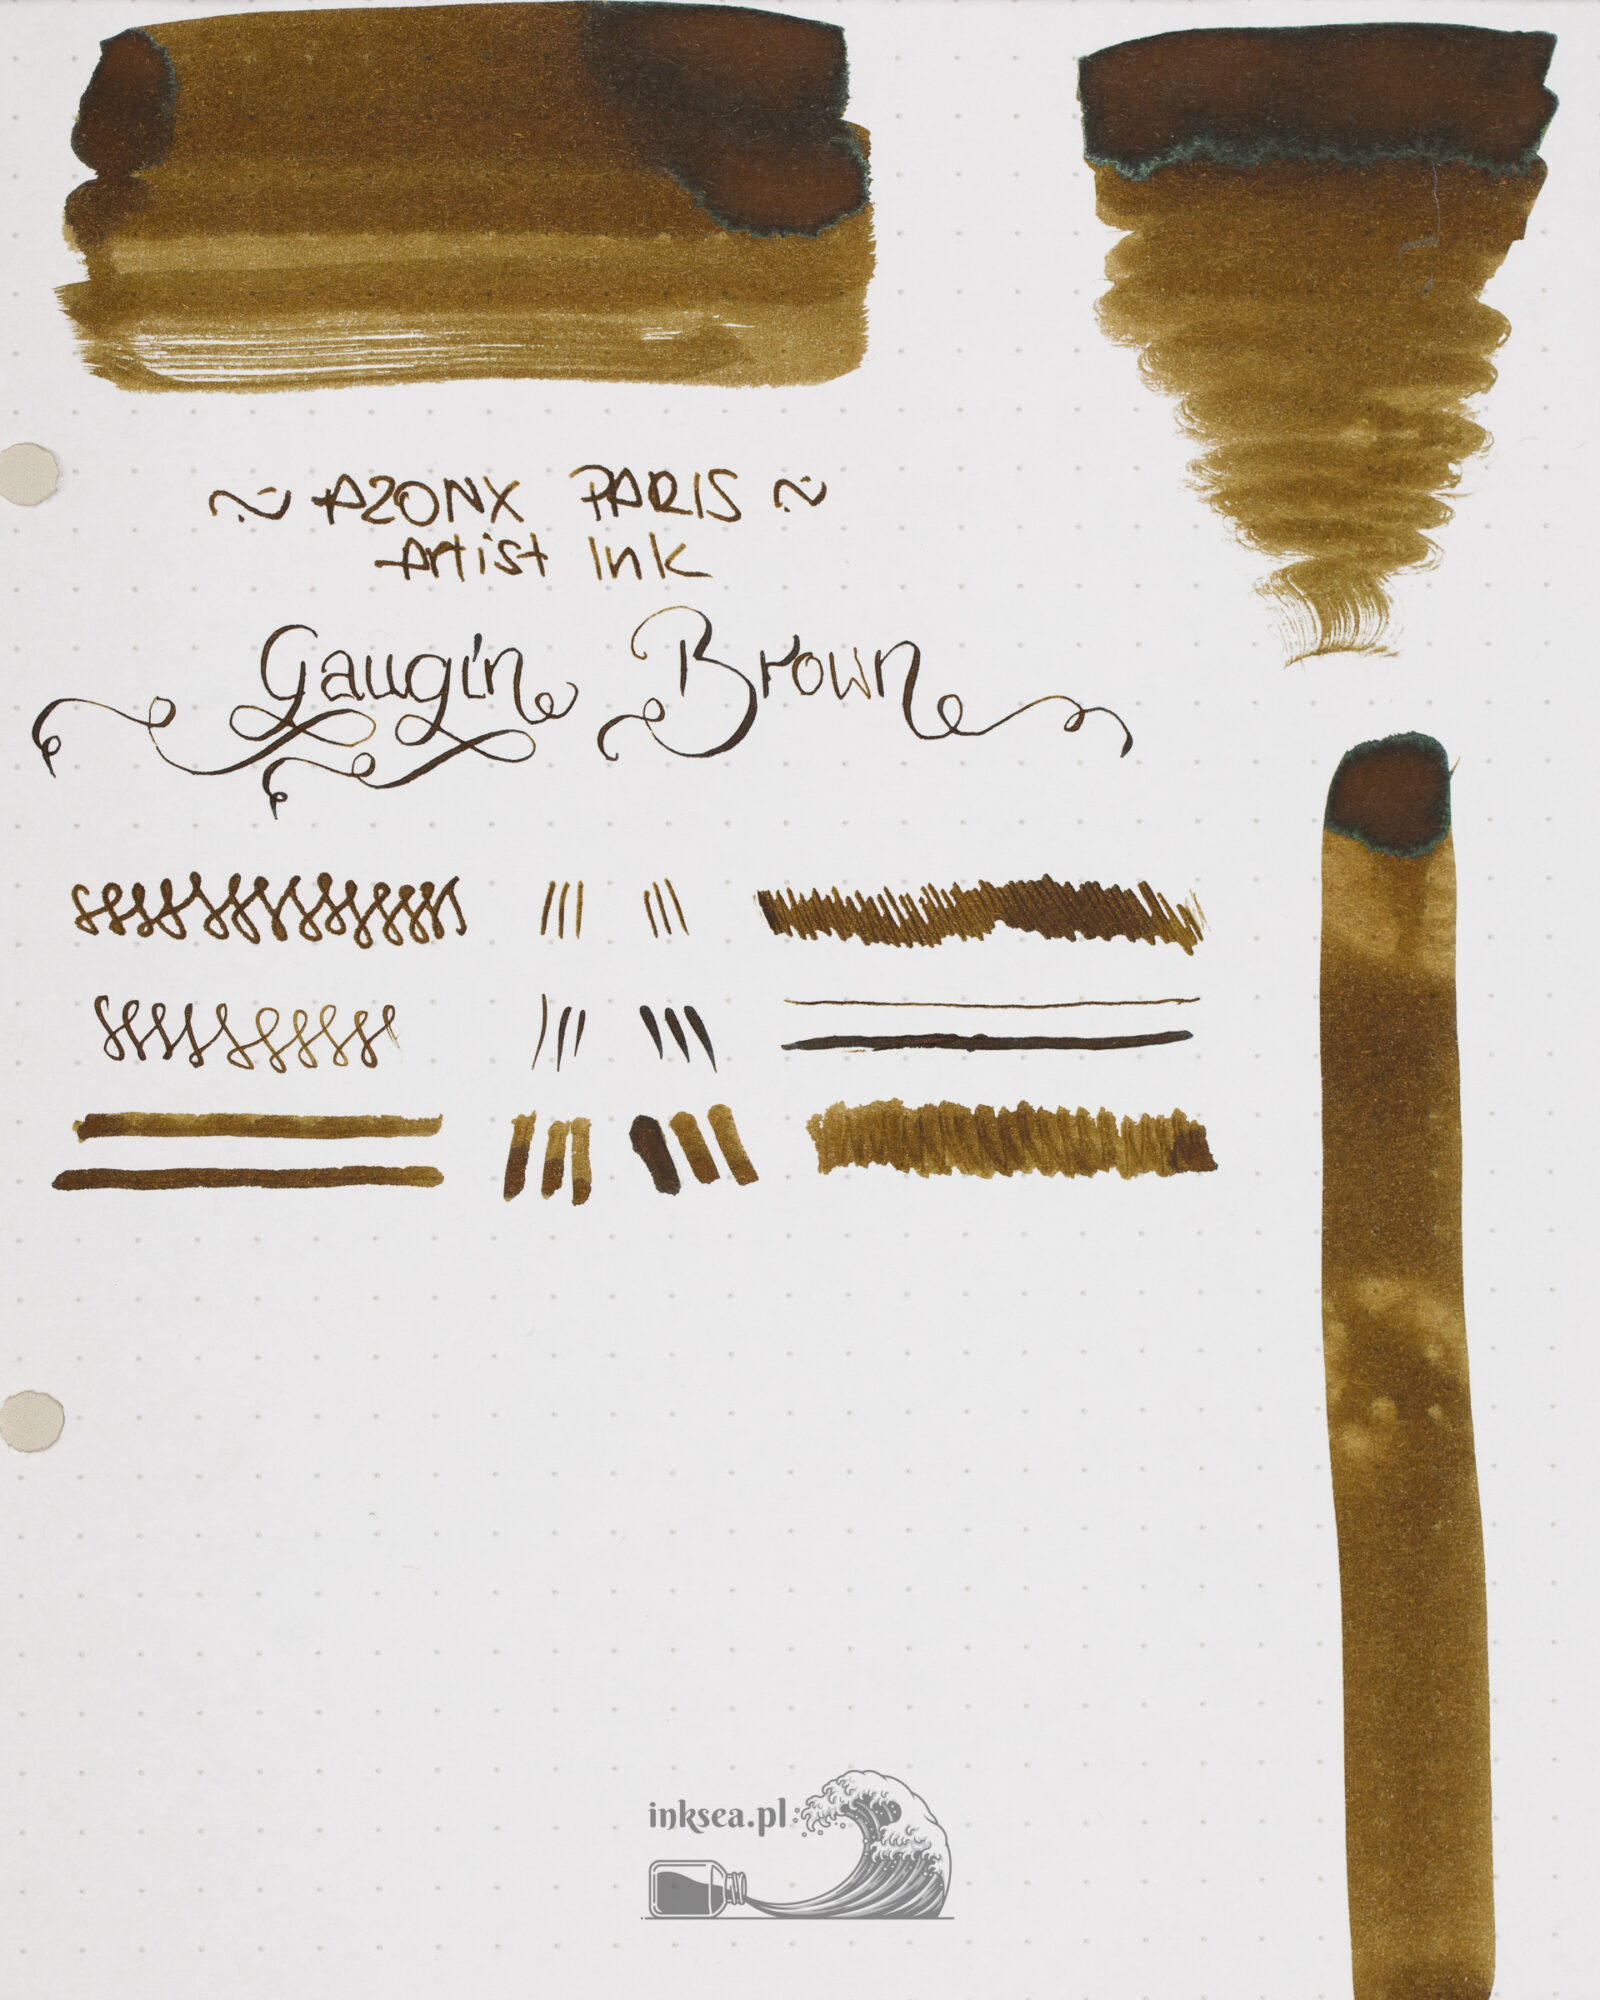 ~ AZONX PARIS ~
Artist Ink
Gaugin Brown
inksea.pl